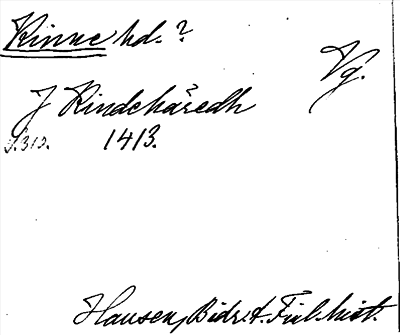 Kinne hd. ?
Vg.
J Kindehåredh
s. 310. 1413.
Hausen, Bidr. t. Finl. hist.